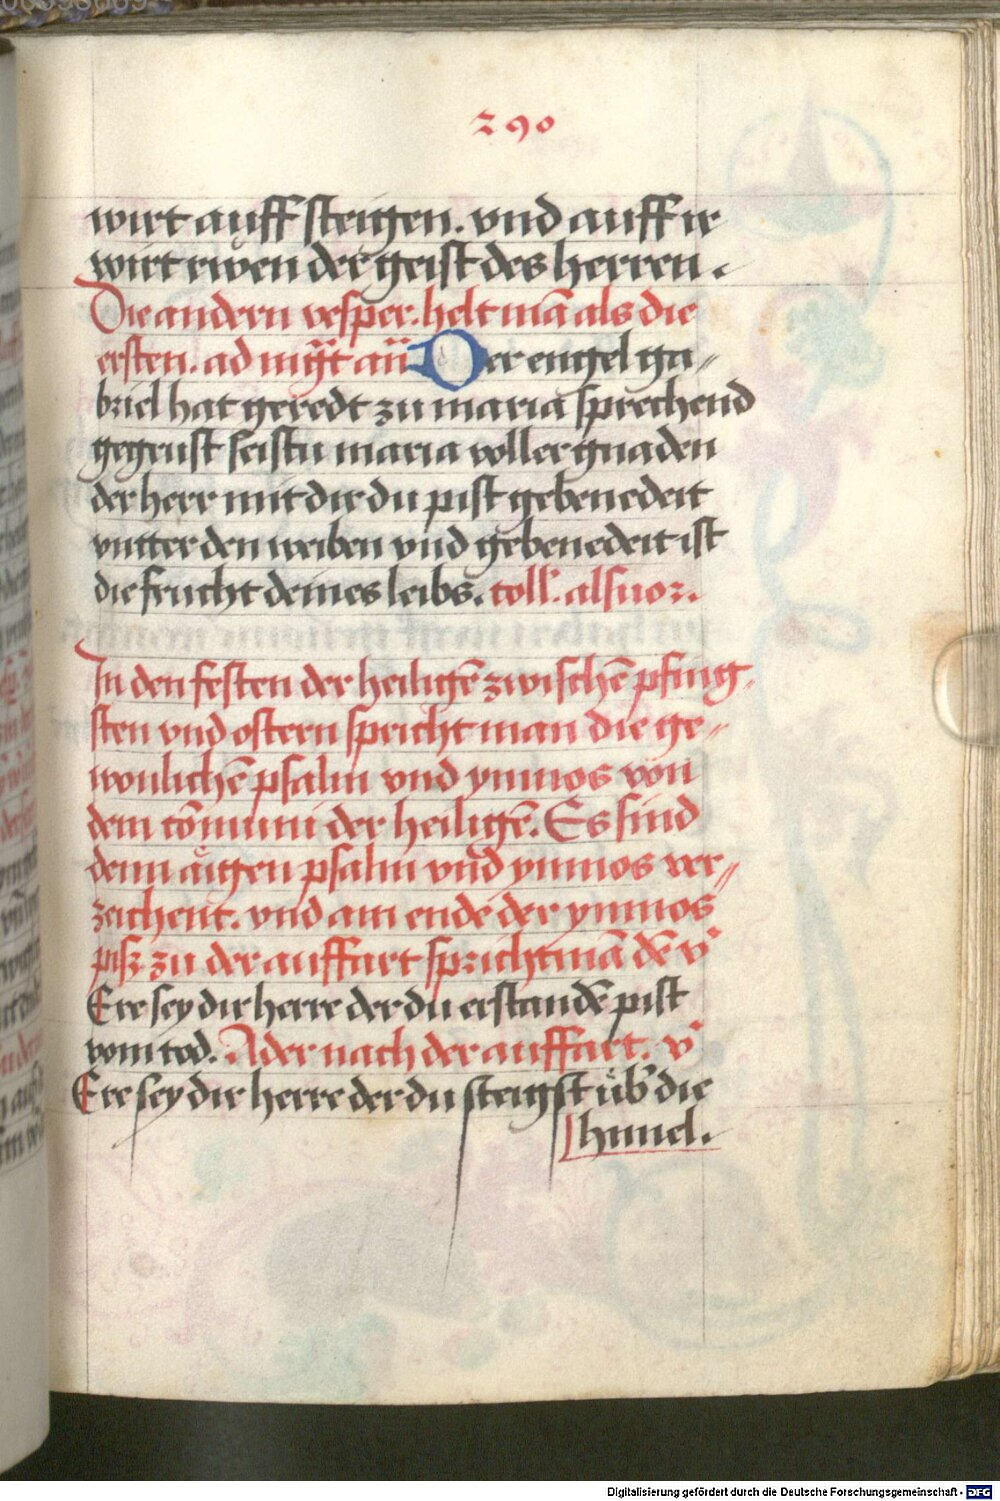 290
wirt auff steigen. vnd auff ir
wirt rwen der geist des herren.
Die andern vesper. helt mā als die
ersten. ad mg̃t an̄ Der engel ga〃
briel hat geredt zu maria sprechend
gegrust seistu maria voller gnaden
der herr mit dir du pist gebenedeit
vntter den weiben vnd gebenedeit ist
die frucht deines leibs. coll. als uor.
In den festen der heiligē zwischē pfing〃
sten vnd ostern spricht man die ge〃
wonlichē psalm vnd ymnos von
dem cōmuni der heiligē. Es sind
denn aigen psalm vnd ymnos ver〃
zeichent. vnd am ende der ymnos
pisz zu der auffart spricht mā dē v̓
Ere sey dir herre der du erstandē pist
vom tod. Ader nach der auffart. v̓
Ere sey dir herre der du steigst ub̓ die
himel.
Digitalisierung gefördert durch die Deutsche Forschungsgemeinschaft - DFG